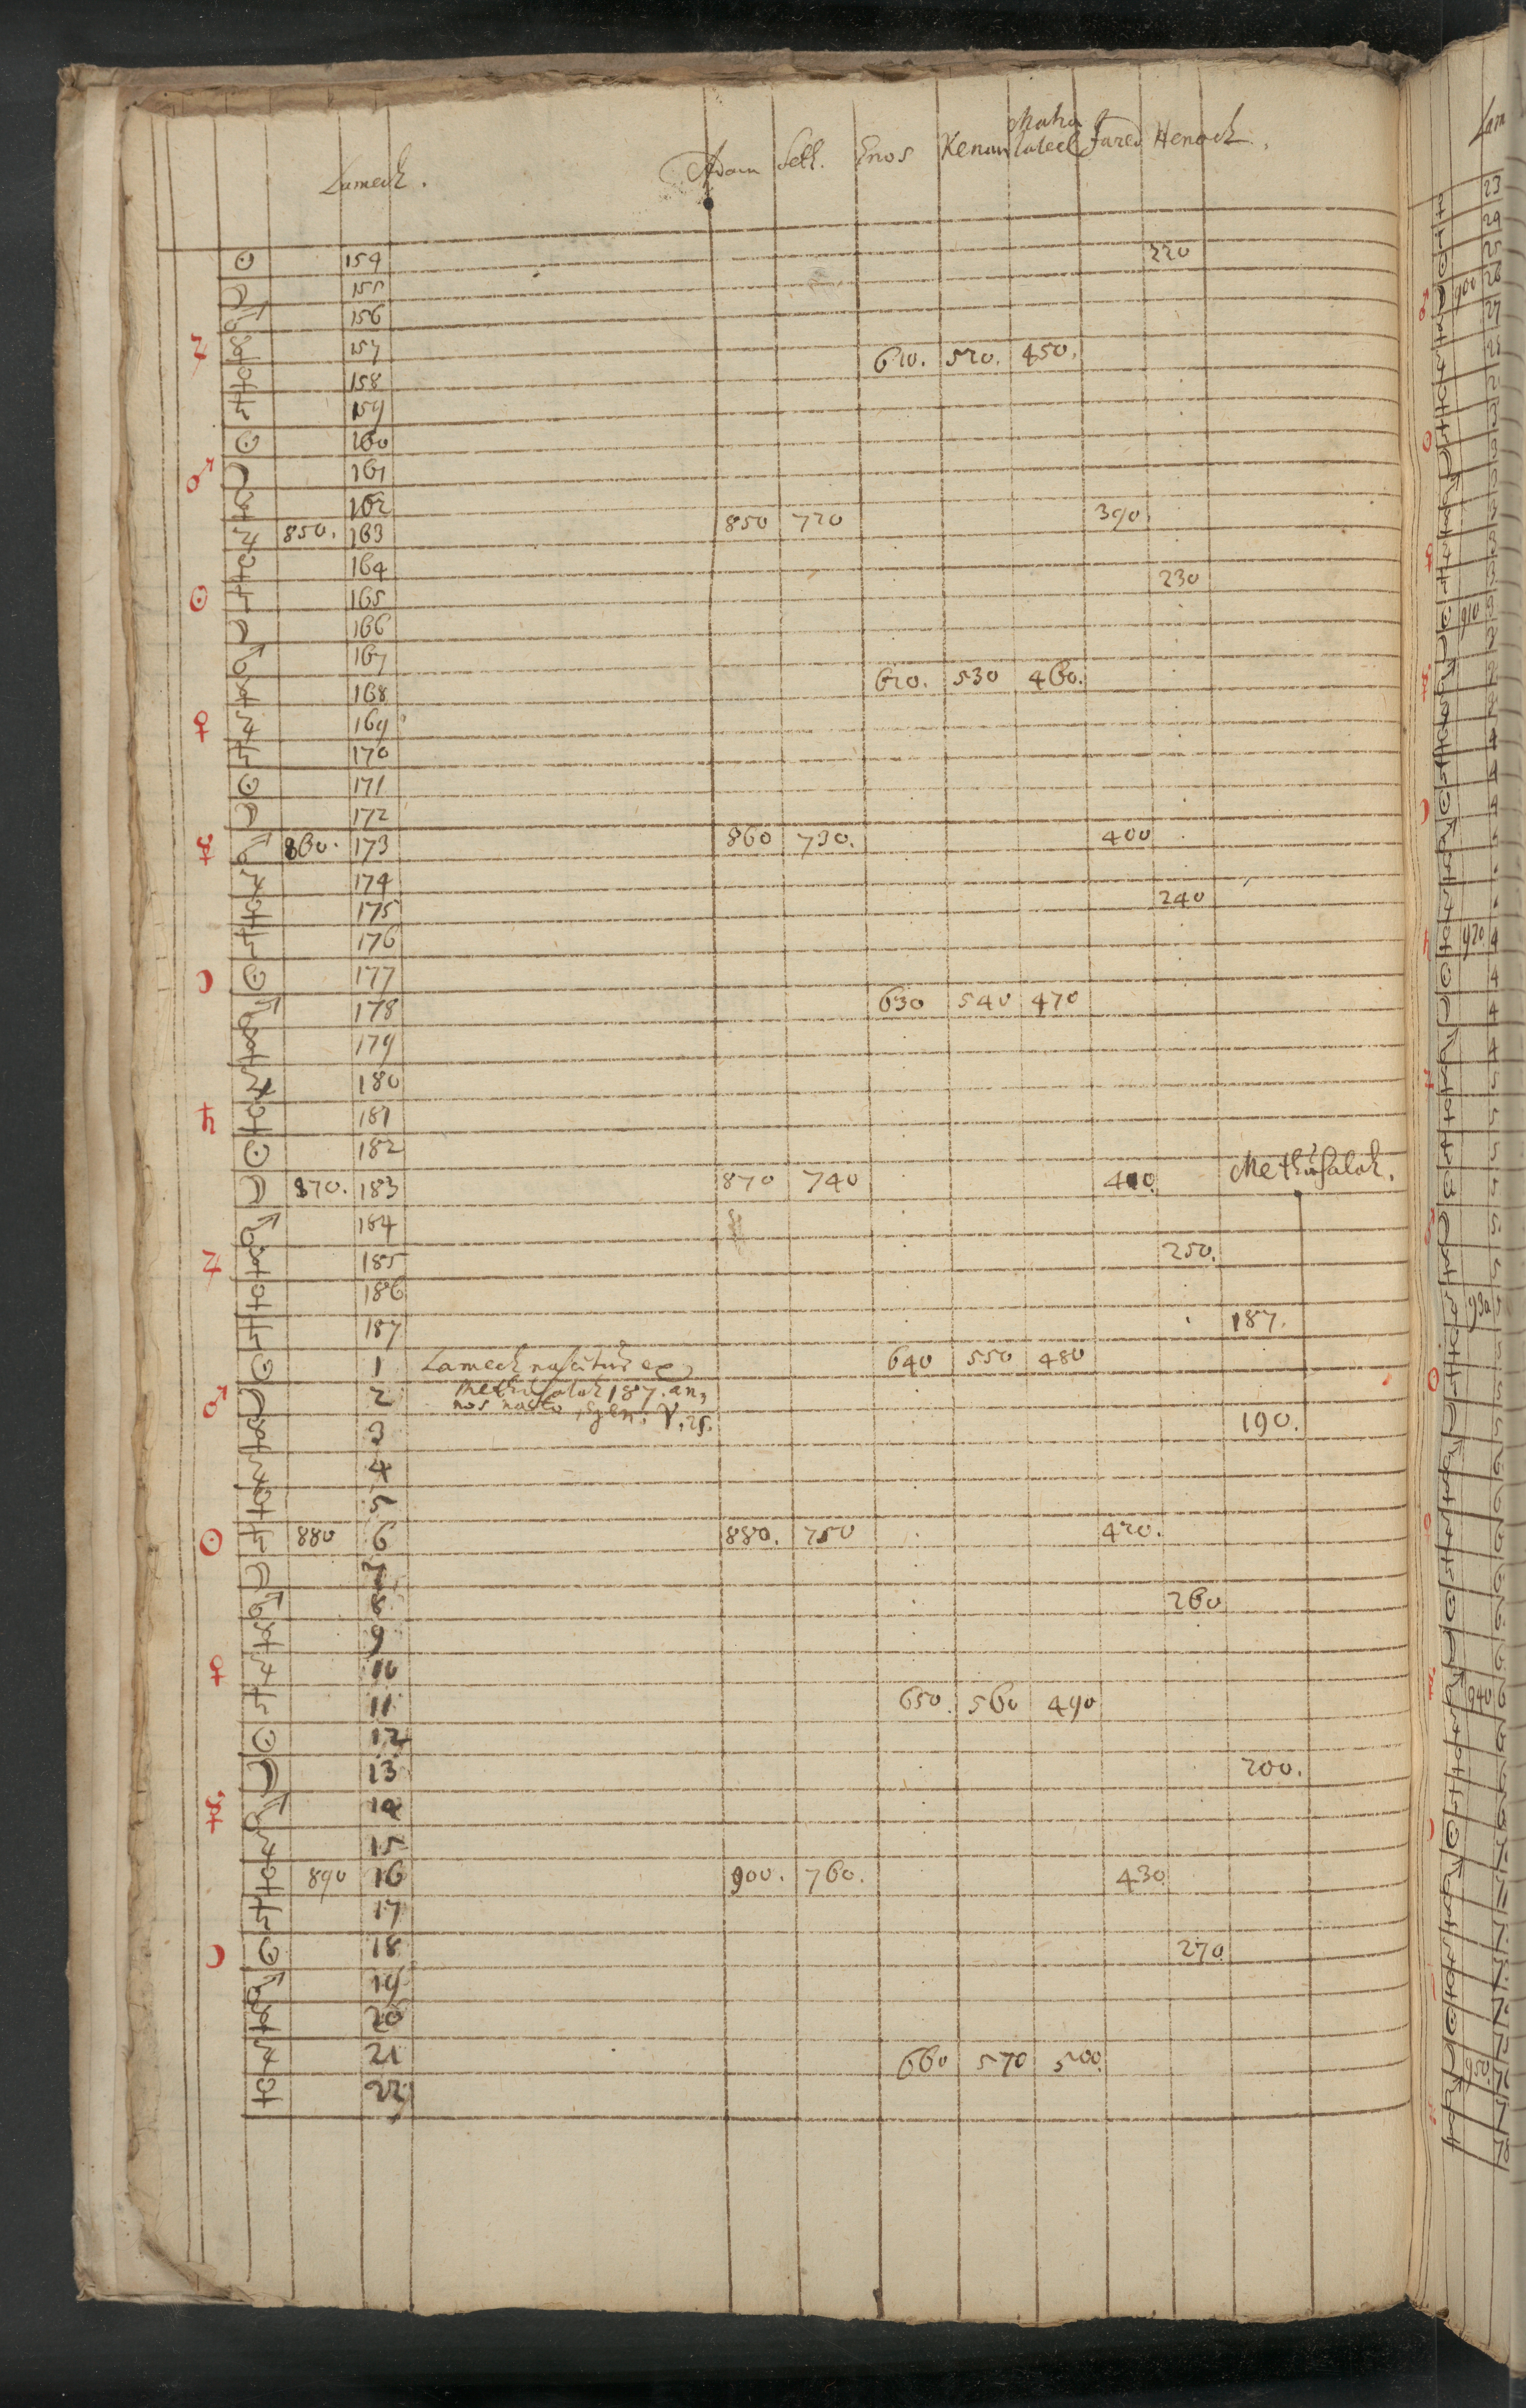 Lamech. Adam Seth. Enos Kenan Mahalaleel Jared Henoch.
☉ 154 220
☽ 155
♂ 156
♃ ☿ 157 610. 520. 450.
♀ 158
♄ 159
☉ 160
♂ ☽ 161
☿ 162
♃ 850. 163 850 720 390
♀ 164
☉ ♄ 165 230
☽ 166
♂ 167
☿ 168 620. 530 460.
♀ ♃ 169
♄ 170
☉ 171
☽ 172
☿ ♂ 860. 173 860 730. 400
♃ 174
♀ 175 240
♄ 176
☽ ☉ 177
♂ 178 630 540 470
☿ 179
♃ 180
♄ ♀ 181
☉ 182
☽ 870. 183 870 740 410. Methusalah.
♂ 184
♃ ☿ 185 250.
♀ 186
♄ 187 187.
☉ 1 Lamech nascitur ex 640 550 480
♂ ☽ 2 Methusalah 187. an,
nos nato, gen. V. 25.
☿ 3 190.
♃ 4
♀ 5
☉ ♄ 880 6 880. 750 420.
☽ 7
♂ 8 260
☿ 9
♀ ♃ 10
♄ 11 650. 560 490
☉ 12
☽ 13 200.
☿ ♂ 14
♃ 15
♀ 890 16 900. 760. 430
♄ 17
☽ ☉ 18 270.
♂ 19
☿ 20
♃ 21 660 570 500.
♀ 22
Lam
23
24
25
900
27
910
920
930
940